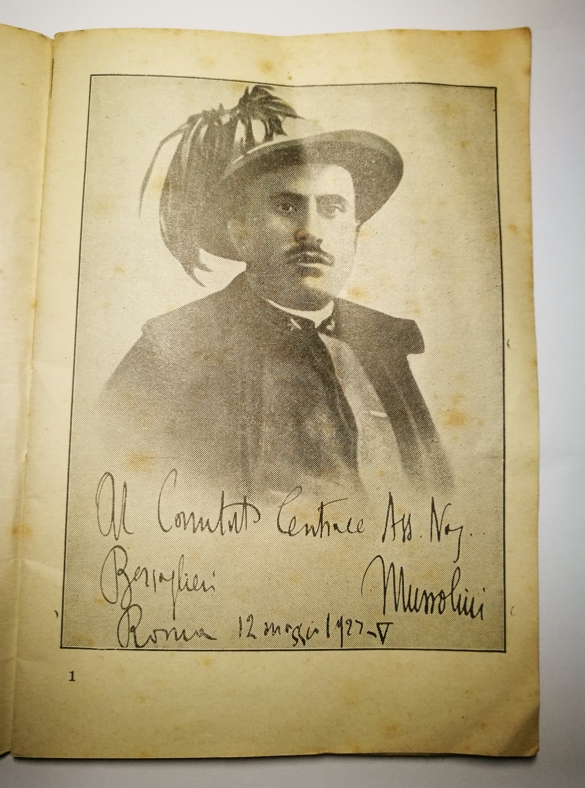 Al Comitato Centrale Ass. Naz.
Bersaglieri Mussolini
Roma 12 maggio 1927-V
1